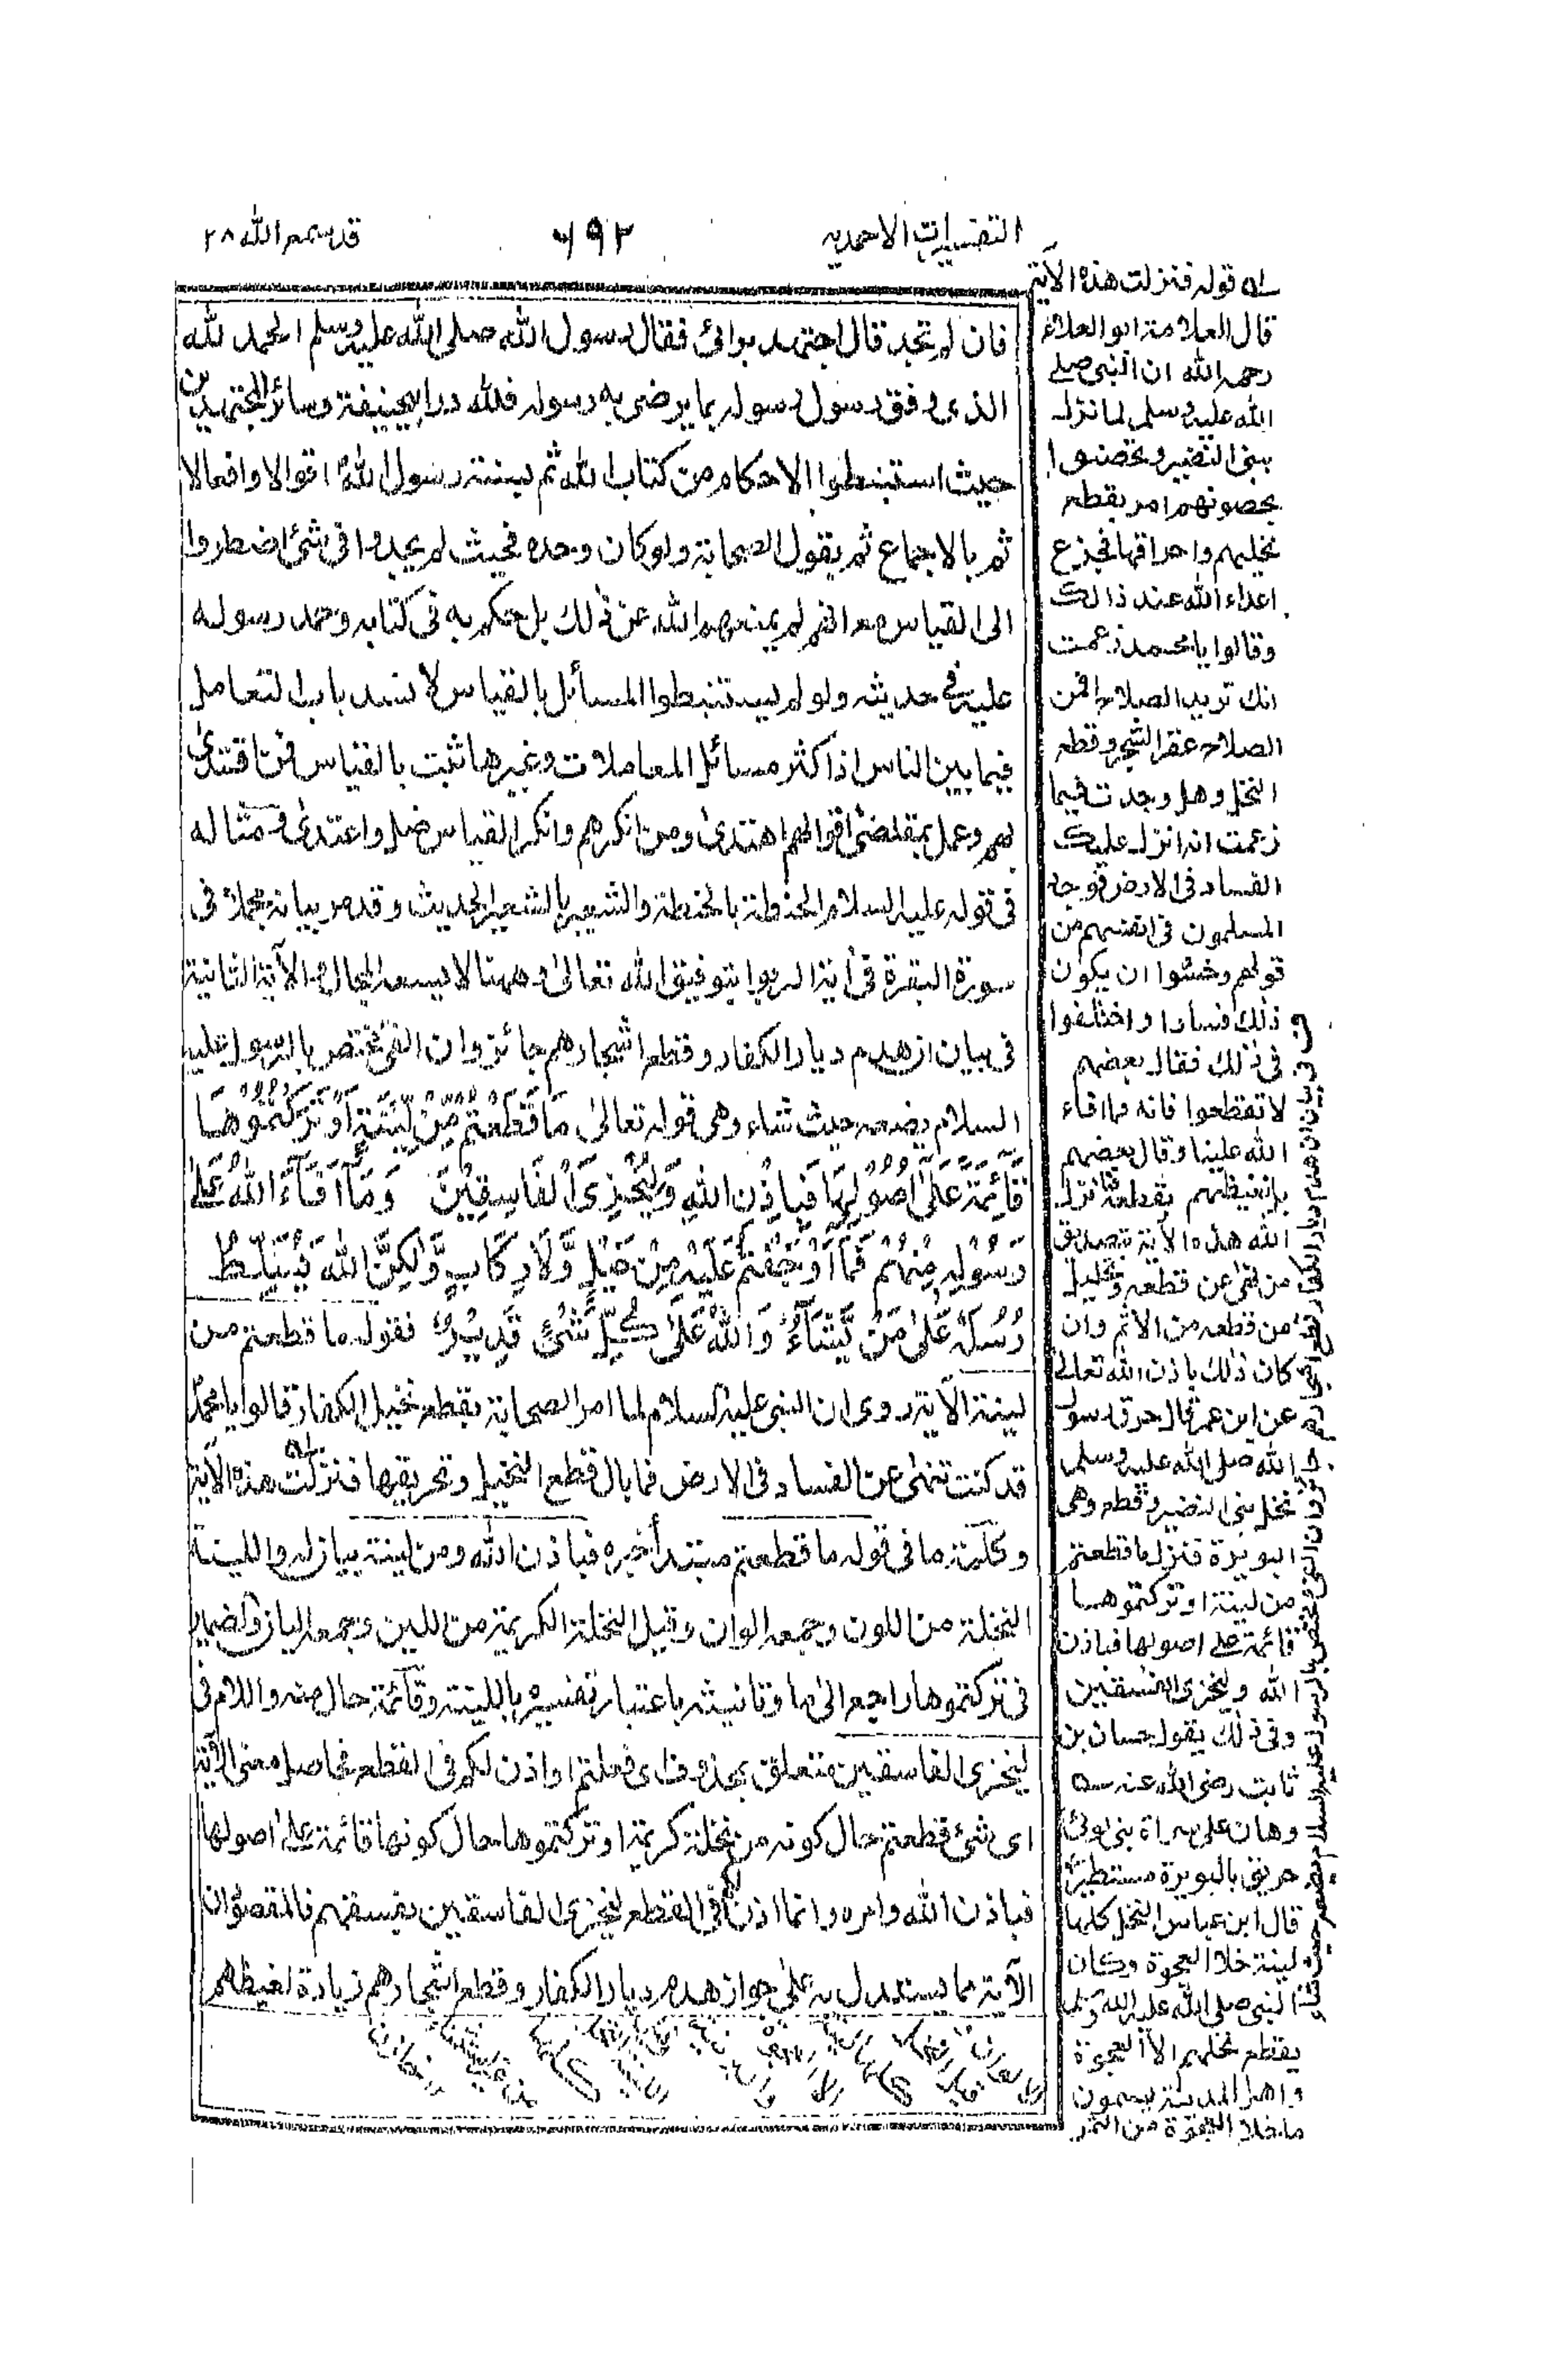 التفسيرات الاحمدية
٦٩٢
قد سمع الله ٢٨
فان لم تجد قال اجتهد برائ فقال رسول الله صلى الله عليه وسلم الحمد لله
الذى وفق رسول رسوله بما يرضى به رسوله فلله در ابيحنيفة وسائر المجتهدين
حيث استنبطوا الاحكام من كتاب الله ثم بسنة رسول الله اقوالا وافعالا
ثم بالاجماع ثم بقول الصحابة ولو كان وحده فحيث لم يجدوا فى شئ اضطروا
الى القياس مع انهم لم يمنعهم الله عن ذلك بل حكم به فى كتابه وحمد رسوله
عليه فى حديثه ولو لم يستنبطوا المسائل بالقياس لانسد باب التعامل
فيما بين الناس اذ اكثر مسائل المعاملات وغيرها ثبت بالقياس فمن اقتدى
بهم وعمل بمقتضى اقوالهم اهتدى ومن انكرهم وانكر القياس ضل واعتدى ومثاله
فى قوله عليه السلام الحنطة بالحنطة والشعير بالشعير الحديث وقد مر بيانه مجملا فى
سورة البقرة فى اية الربوا بتوفيق الله تعالى وههنا لا يسعه المجال الآية الثانية
فى بيان ان هدم ديار الكفار وقطع اشجارهم جائز وان الفئ مختص بالرسول عليه
السلام يضعه حيث شاء وهى قوله تعالى مَا قَطَعْتُمْ مِّنْ لِّيْنَةٍ اَوْ تَرَكْتُمُوْهَا
قَآئِمَةً عَلٰى اُصُوْلِهَا فَبِاِذْنِ اللهِ وَلِيُخْزِىَ الْفَاسِقِيْنَ وَمَآ اَفَآءَ اللهُ عَلٰى
رَسُوْلِهٖ مِنْهُمْ فَمَآ اَوْجَفْتُمْ عَلَيْهِ مِنْ خَيْلٍ وَّلَا رِكَابٍ وَّلٰكِنَّ اللهَ يُسَلِّطُ
رُسُلَهٗ عَلٰى مَنْ يَّشَآءُ وَاللهُ عَلٰى كُلِّ شَىْءٍ قَدِيْرٌ فقوله ما قطعتم من
لينة الآية روى ان النبى عليه السلام لما امر الصحابة بقطع نخيل الكفار قالوا يا محمد
قد كنت تنهى عن الفساد فى الارض فما بال قطع النخيل وتحريقها فنزلت هذه الآية
وكلمة ما فى قوله ما قطعتم مبتدأ خبره فباذن الله ومن لينة بيان له واللينة
النخلة من اللون وجمعه الوان وقيل النخلة الكريمة من اللين وجمعه اليان والضمير
فى تركتموها راجع الى ما وتانيثه باعتبار تفسيره باللينة وقائمة حال منه واللام فى
ليخزى الفاسقين متعلق بمحذوف اى فعلتم او اذن لكم فى القطع فحاصل معنى الآية
اى شئ قطعتم حال كونه من نخلة كريمة او تركتموها حال كونها قائمة على اصولها
فباذن الله وامره وانما اذن لكم فى القطع ليخزى الفاسقين بفسقهم فالمقصود ان
الآية مما يستدل به على جواز هدم ديار الكفار وقطع اشجارهم زيادة لغيظهم
له قوله فنزلت هذه الآية
قال العلامة ابو العلاء
رحمه الله ان النبى صلى
الله عليه وسلم لما نزل
ببنى النضير وتحصنوا
بحصونهم امر بقطع
نخيلهم واحراقها فجزع
اعداء الله عند ذالك
وقالوا يا محمد زعمت
انك تريد الصلاح افمن
الصلاح عقر الشجر وقطع
النخل وهل وجدت فيما
زعمت انه انزل عليك
الفساد فى الارض فوجد
المسلمون فى انفسهم من
قولهم وخشوا ان يكون
ذلك فسادا واختلفوا
فى ذلك فقال بعضهم
لا تقطعوا فانه مما افاء
الله علينا وقال بعضهم
بل نغيظهم بقطعه فانزل
الله هذه الآية بتصديق
من نهى عن قطعه وتحليل
من قطعه من الاثم وان
كان ذلك باذن الله تعالى
عن ابن عمر قال حرق رسول
الله صلى الله عليه وسلم
نخل بنى النضير وقطع وهى
البويرة فنزل ما قطعتم
من لينة او تركتموها
قائمة على اصولها فباذن
الله وليخزى الفسقين
وفى ذلك يقول حسان بن
ثابت رضى الله عنه سه
وهان على سراة بنى لوئ
حريق بالبويرة مستطير
قال ابن عباس النخل كلها
لينة خلا العجوة وكان
النبى صلى الله عليه وسلم
يقطع نخلهم الا العجوة
واهل المدينة يسمون
ما خلا العجوة من التمر
فى بيان ان هدم ديار الكفار وقطع اشجارهم جائز وان الفئ مختص بالرسول عليه السلام يضعه حيث شاء